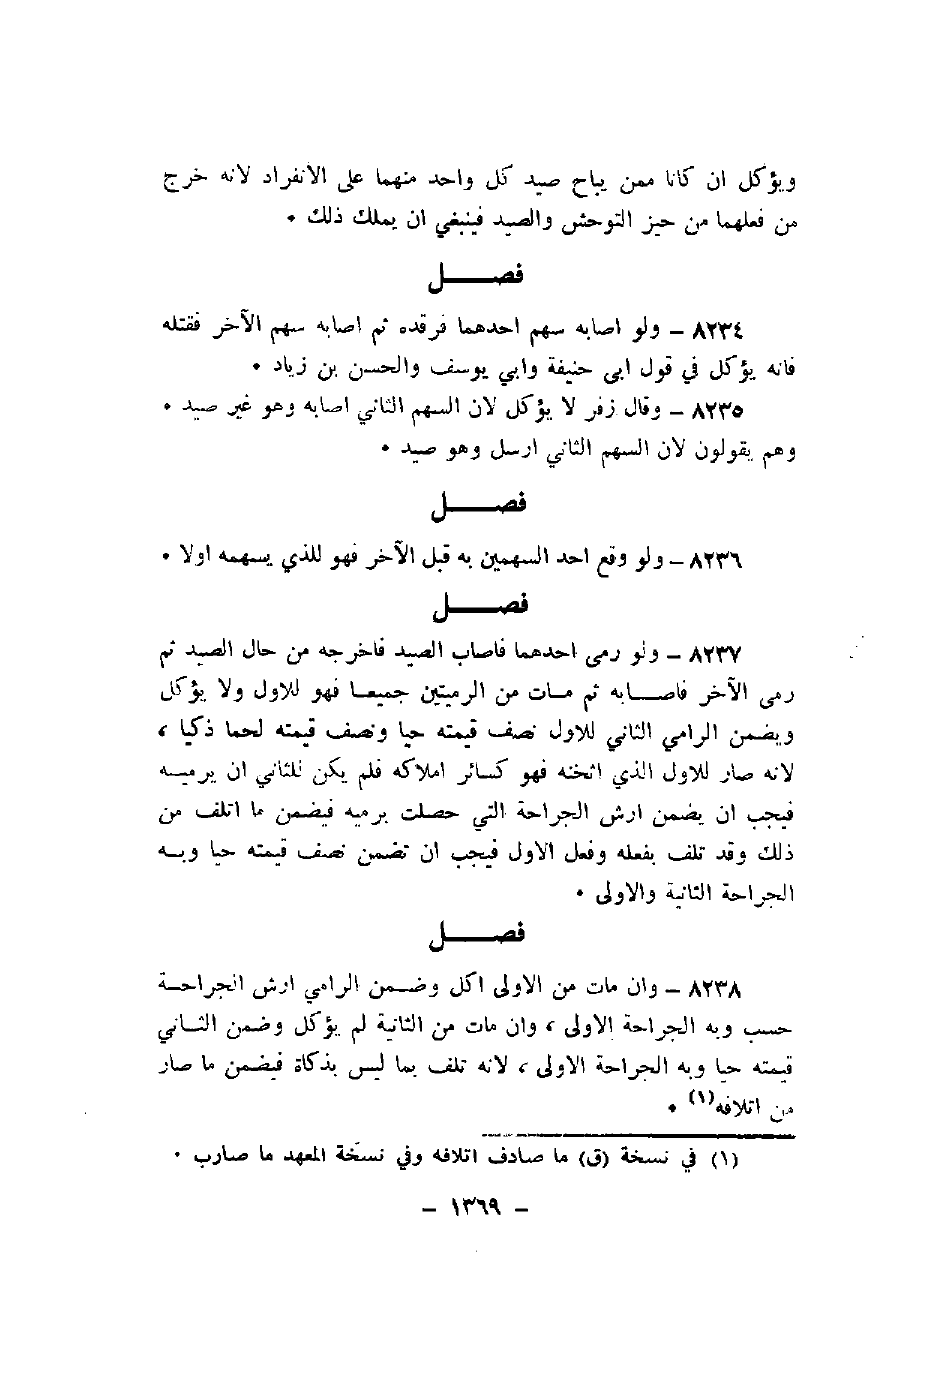 ويؤكل ان كانا ممن يباح صيد كل واحد منهما على الانفراد لانه خرج
من فعلهما من حيز التوحش والصيد فينبغي ان يملك ذلك ٠
فصـــــل
٨٢٣٤ – ولو اصابه سهم احدهما فرقده ثم اصابه سهم الآخر فقتله
فانه يؤكل في قول ابى حنيفة وابي يوسف والحسن بن زياد ٠
٨٢٣٥ – وقال زفر لا يؤكل لان السهم الثاني اصابه وهو غير صيد ٠
وهم يقولون لان السهم الثاني ارسل وهو صيد ٠
فصـــــل
٨٢٣٦ – ولو وقع احد السهمين به قبل الآخر فهو للذي يسهمه اولا ٠
فصـــــل
٨٢٣٧ – ولو رمى احدهما فاصاب الصيد فاخرجه من حال الصيد ثم
رمى الآخر فاصـــابه ثم مـات من الرميتين جميعـا فهو للاول ولا يؤكل
ويضمن الرامي الثاني للاول نصف قيمته حيا ونصف قيمته لحما ذكيا ،
لانه صار للاول الذي اثخنه فهو كسائر املاكه فلم يكن للثاني ان يرميـه
فيجب ان يضمن ارش الجراحة التي حصلت برميه فيضمن ما اتلف من
ذلك وقد تلف بفعله وفعل الاول فيجب ان تضمن نصف قيمته حيا وبـه
الجراحة الثانية والاولى ٠
فصـــــل
٨٢٣٨ – وان مات من الاولى اكل وضـمن الرامي ارش الجراحـة
حسب وبه الجراحة الاولى ، وان مات من الثانية لم يؤكل وضمن الثـاني
قيمته حيا وبه الجراحة الاولى ، لانه تلف بما ليس بذكاة فيضمن ما صار
من اتلافه(١) ٠
(١) في نسخة (ق) ما صادف اتلافه وفي نسخة المعهد ما صارب ٠
– ١٣٦٩ –